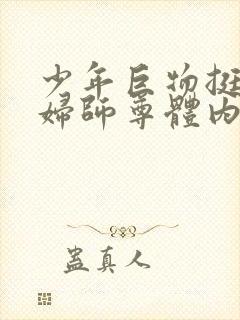 少年巨物挺
婦師尊體內
蠱真人